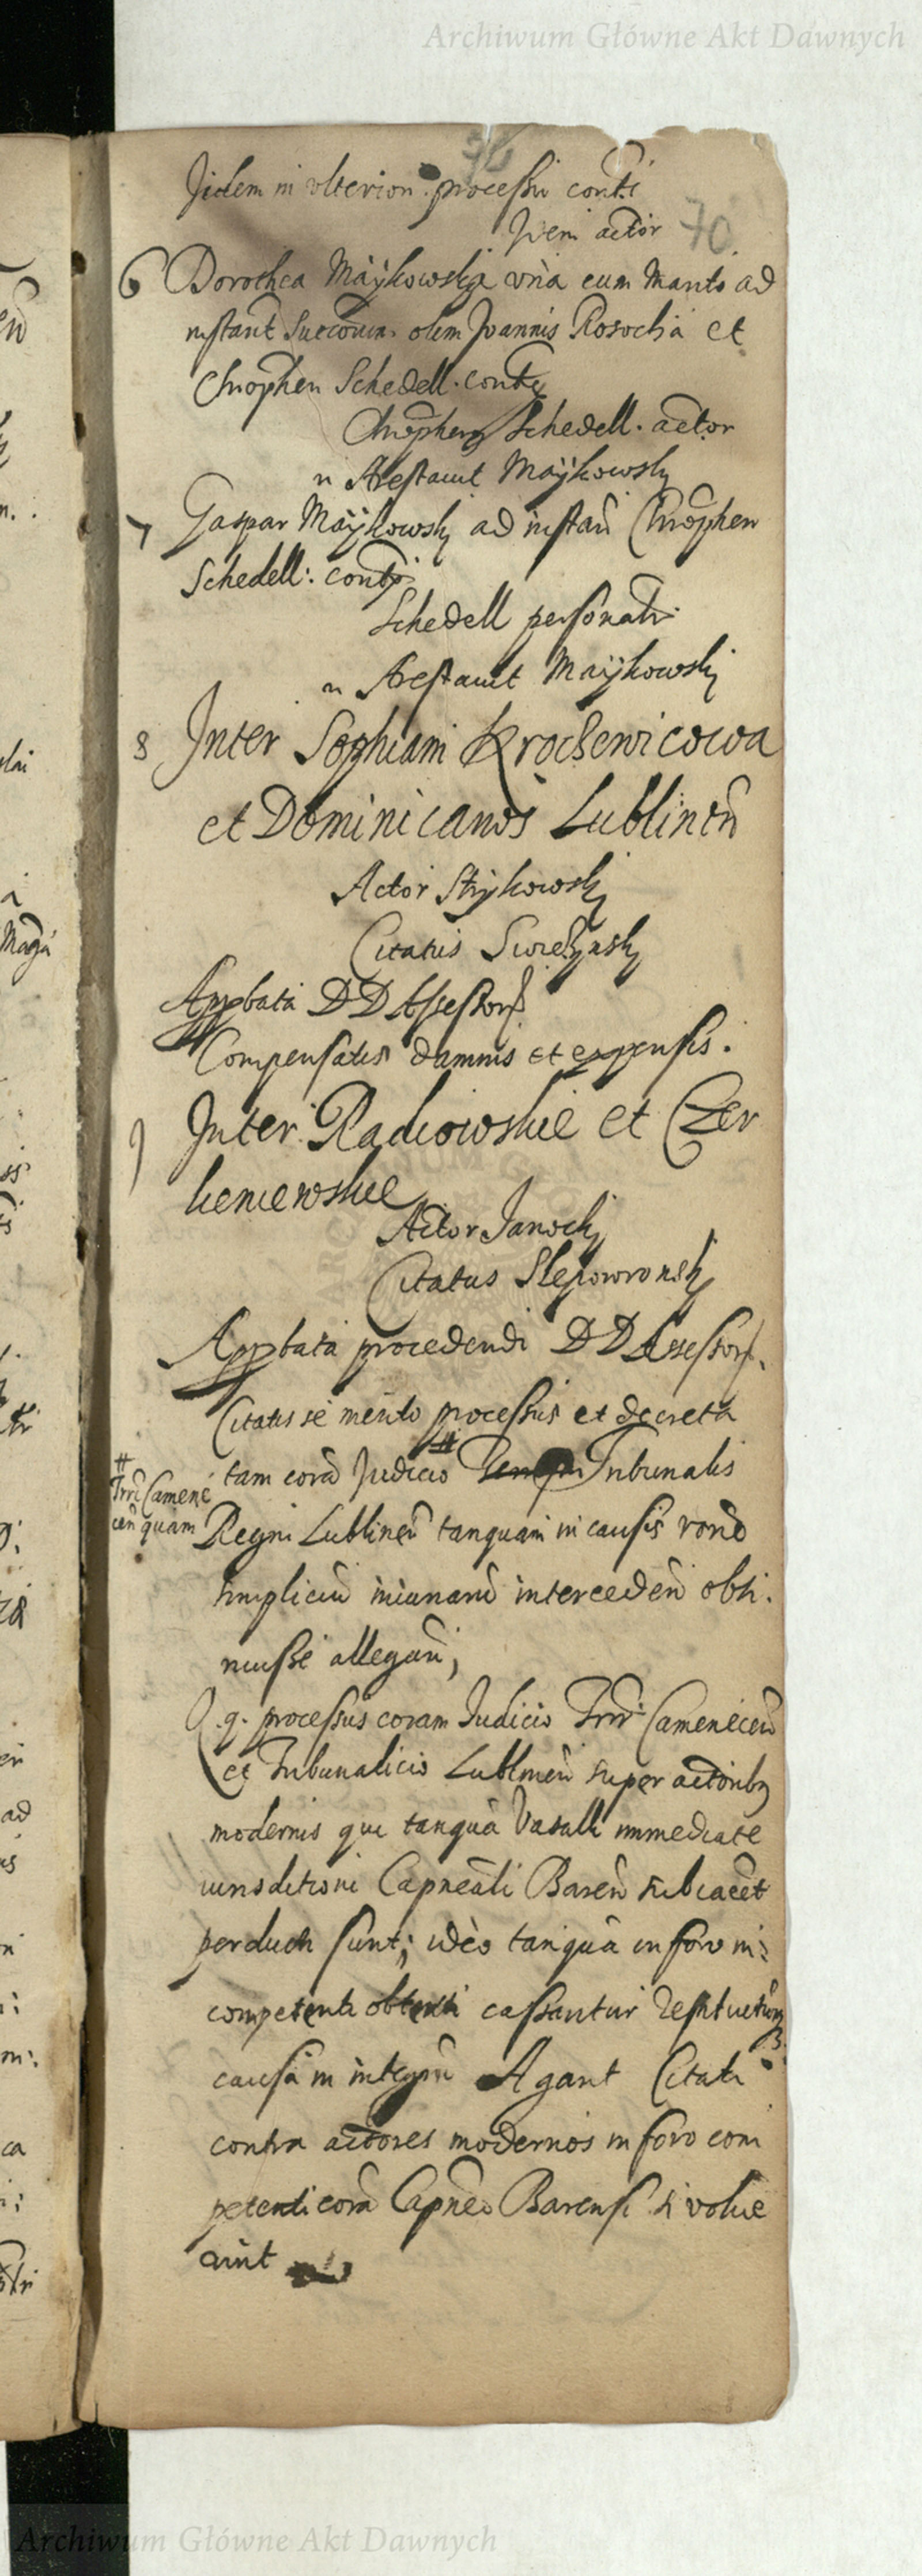 Archiwum Główne Akt Dawnych
70
Jidem in ulteriori processu conti
Idem actor 70
6 Dorothea Maÿkowska una cum Marito ad
instant Succorum olim Joannis Rosochá et
Chrophen Schedell. conti
Chrophen Schedell. actor
n Arestavit Maÿkowskj
7 Gaspar Maÿkowskj ad instan̄ Chrophen
Schedell: conti
Schedell personalr
n Arestavit Maÿkowskj
8 Inter Sophiam
et Dominicanos Lublinen̄
Actor Strÿkowskj
Citatus
Appbata DD Assessor
Compensatis damnis et expensis.
9 Inter Radiowskie et Czer
lieniewskie
Actor Janockj
Citatus Slepowronskj
Appbata procedendi DD Assessor
Citatis se merito processus et decreta
# tam corā Judicio # Tribunalis
Trr̄i Camene
cen̄ quam
Regni Lublinen̄ tanquam in causis rōne
simplicium iniuriarū interceden̄ obti.
nuisse allegan̄;
Q.q. processus coram Judicio Trr̄i Camenecen̄
et Tribunalicio Lublinen̄ super actoribz
modernis qui tanquā Vasalli immediate
iurisditioni Capnēali Baren̄ subiacēt
perducti sunt; ideo tanquā in foro in:
competenti obtenti cassantur
causā in integrū Agant Citati
contra actores modernos in foro com
petenti corā Capnēo Barensi si volue
rint
Archiwum Główne Akt Dawnych